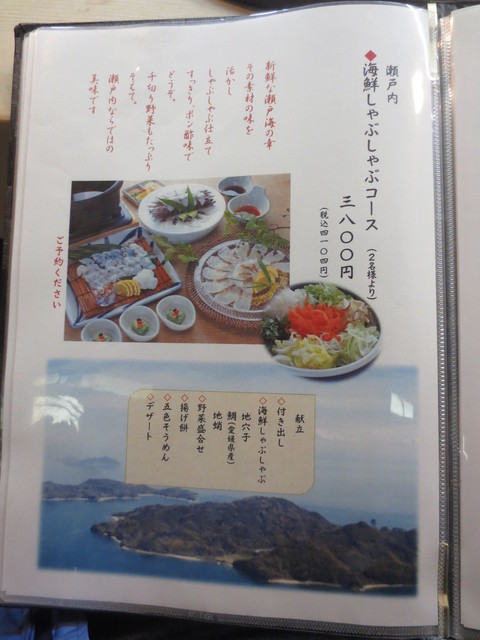 瀬戸内
◆海鮮しゃぶしゃぶコース
(2名様より)
三八〇〇円
(税込四一〇四円)
新鮮な瀬戸海の幸
その素材の味を
活かし
しゃぶしゃぶ仕立て
すっきり、ポン酢味で
どうぞ。
千切り野菜もたっぷり
そえて。
瀬戸内ならではの
美味です
ご予約ください
献立
◇付き出し
◇海鮮しゃぶしゃぶ
地穴子
鯛(愛媛県産)
地蛸
◇野菜盛合せ
◇揚げ餅
◇五色そうめん
◇デザート